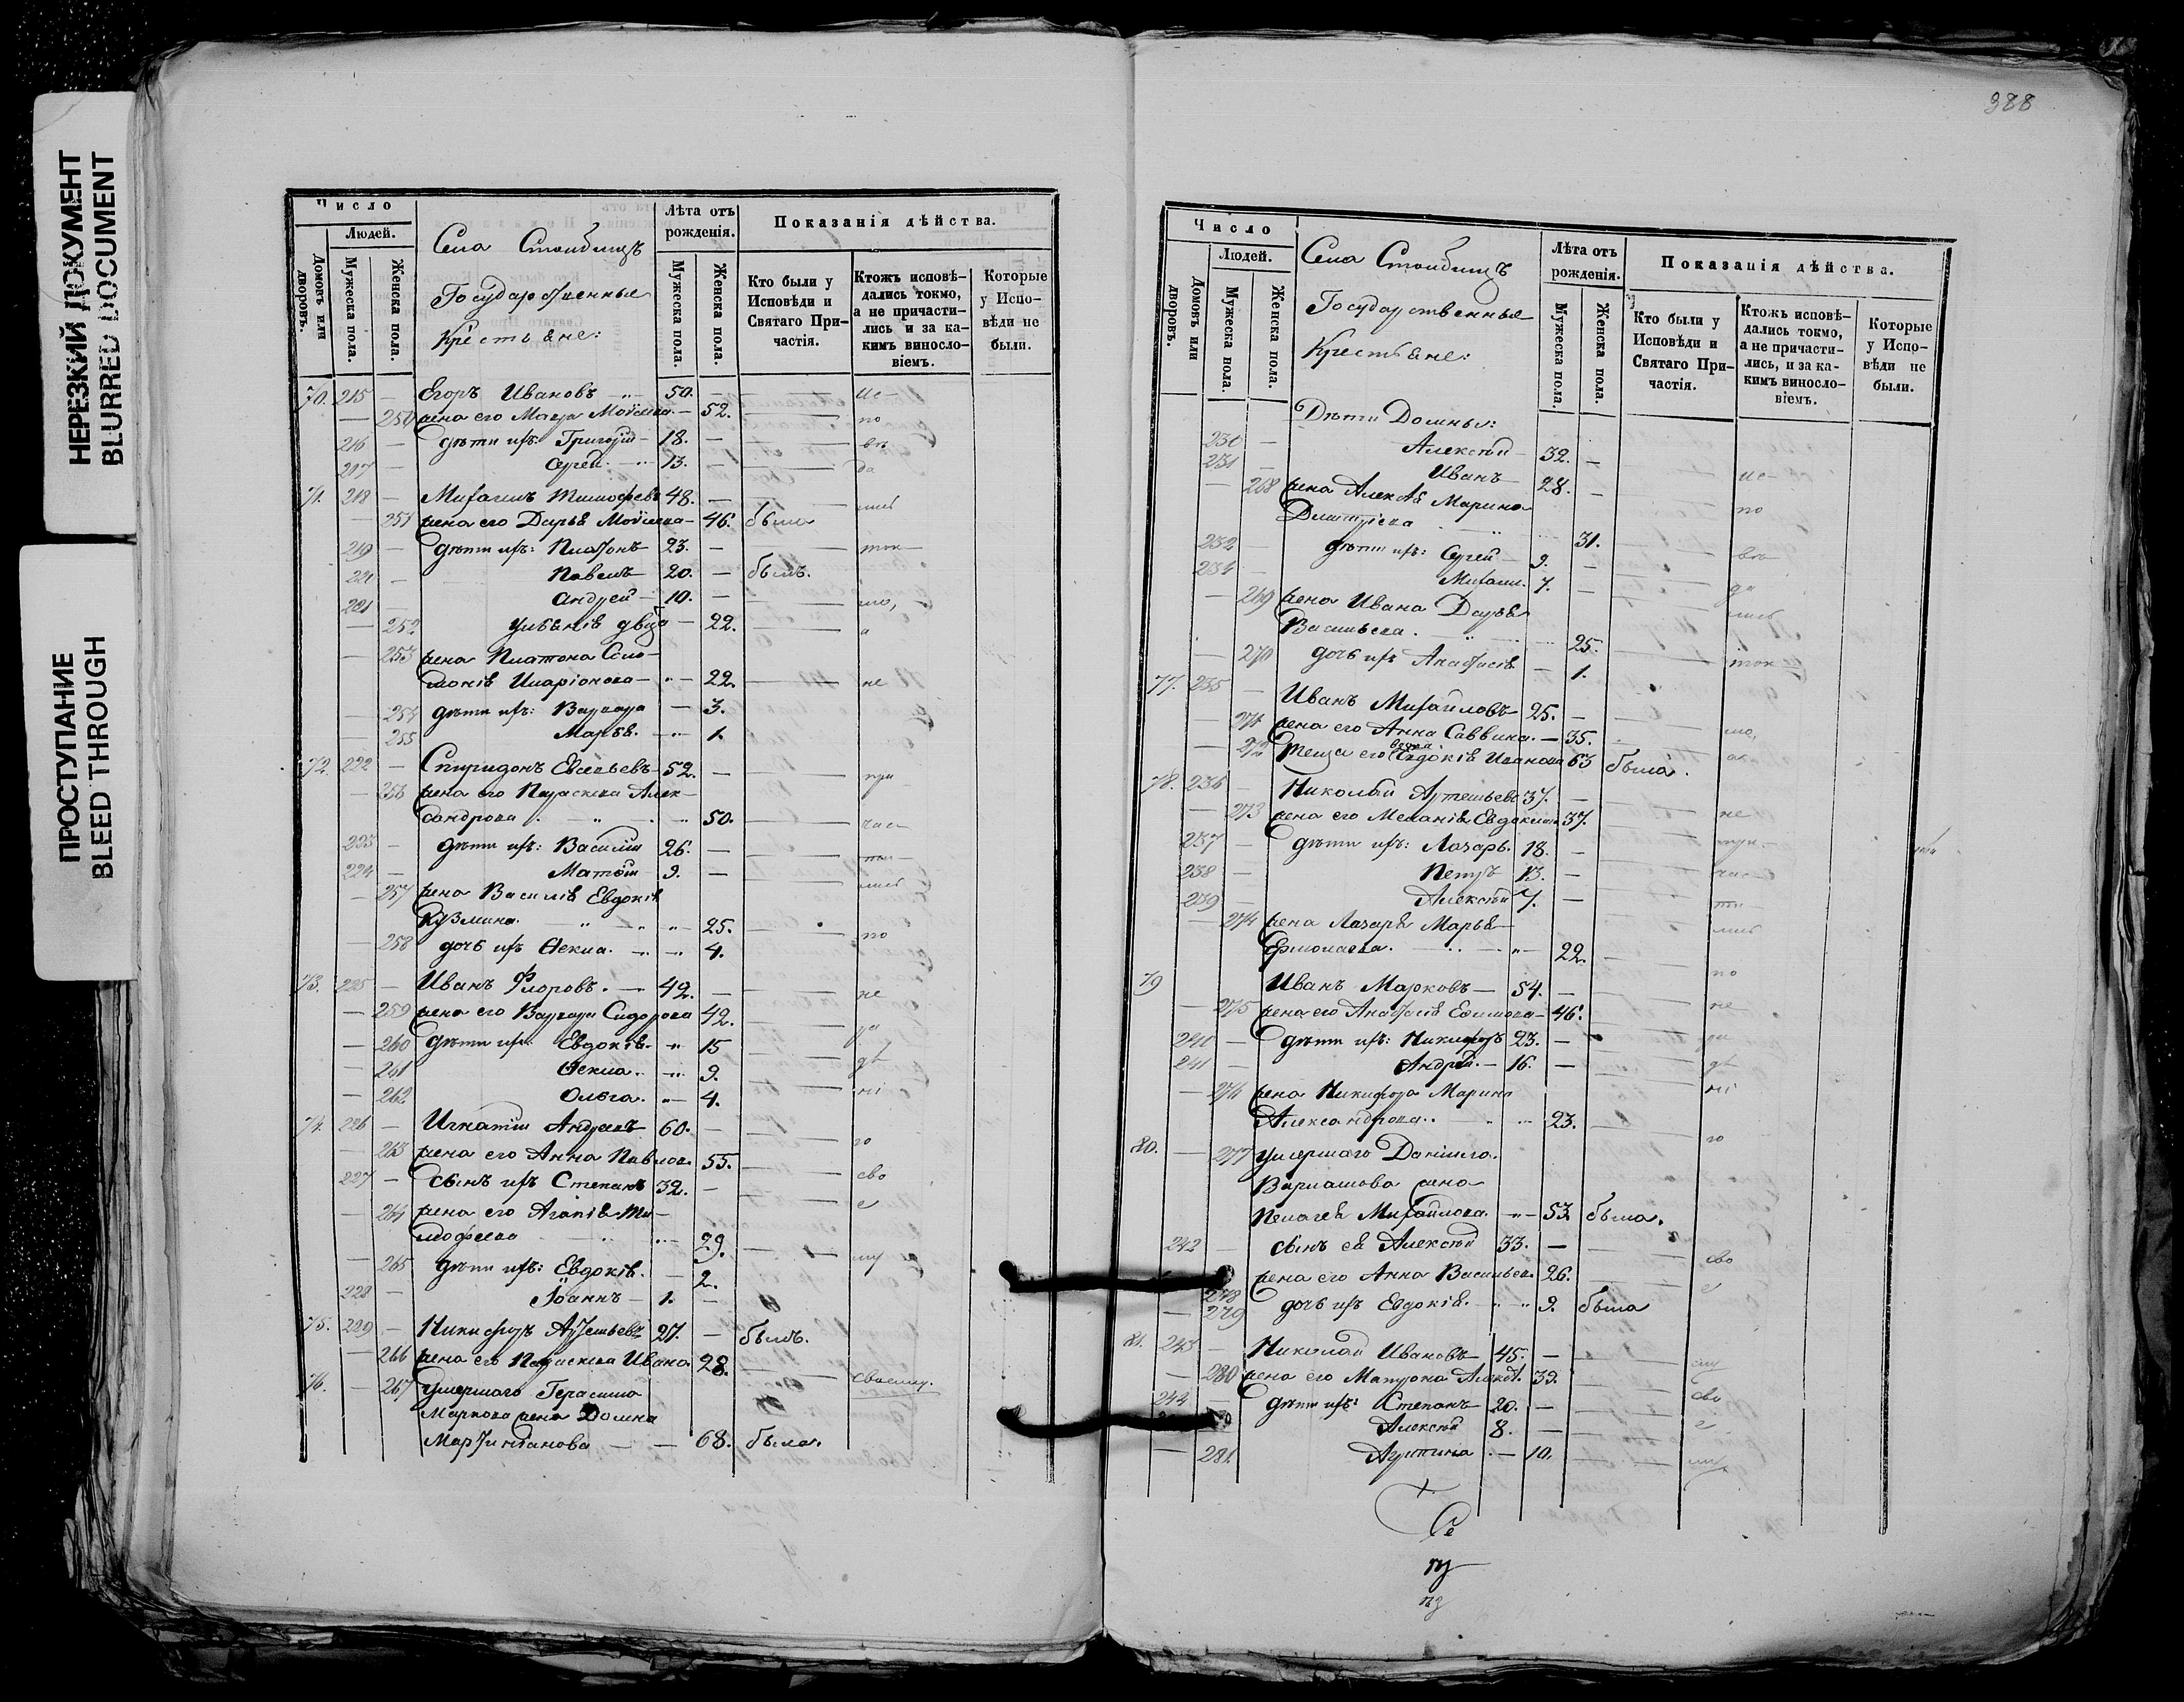 НЕРЕЗКИЙ ДОКУМЕНТ
BLURRED DOCUMENT
ПРОСТУПАНИЕ
BLEED THROUGH
Число
Людей.
Домовъ или дворовъ.
Мужеска пола.
Женска пола.
Села Столбищъ
Государственные
Крестьяне:
Лѣта отъ рожденія.
Мужеска пола.
Женска пола.
Показанія дѣйства.
Кто были у Исповѣди и Святаго Причастія.
Ктожъ исповѣ-
дались токмо,
а не причасти-
лись и за ка-
кимъ виносло-
віемъ.
Которые
у Испо-
вѣди не
были.
70. 215 — Егоръ Ивановъ 50. — ис-
— 250 жена его Мавра Моѵсеева — 52. по
216 — дѣти ихъ: Григорій 18. — вѣ
217 — Сергей 13. — да
71. 218 — Михаилъ Тимофеевъ 48. — лись
— 251 жена его Дарья Моѵсеева — 46. была
219 — дѣти ихъ: Платонъ 23. — ток
220 — Павелъ 20. — былъ.
221 — Андрей 10. — мо,
— 252 Ульянія двца — 22. а
— 253 жена Платона Соло-
монія Иларіонова — 22. не
— 254 дѣти ихъ: Варвара — 3.
— 255 Марья. — 1.
72. 222 — Спиридонъ Евсевьевъ 52. — при
— 256 жена его Параскева Алек-
сандрова — 50. час
223 — дѣти ихъ: Василій 26. — ти
224 — Матѳій 9. — лись
— 257 жена Василія Евдокія
Кузмина — 25. по
— 258 дочь ихъ Ѳекла. — 4.
73. 225 — Иванъ Флоровъ. 42. — не
— 259 жена его Варвара Сидорова 42. ра
— 260 дѣти ихъ: Евдокія. — 15
— 261 Ѳекла. — 9. дѣ
— 262 Ольга. — 4. ні
74. 226 — Игнатій Андреевъ 60. —
— 263 жена его Анна Павлова 55. го
227 — сынъ ихъ Степанъ 32. — сво
— 264 жена его Агапія Ти-
мофеева — 29. е
— 265 дѣти ихъ: Евдокія. — 2. му
228 — Іоаннъ — 1. —
75. 229 — Никифоръ Артемьевъ 27. — былъ.
— 266 жена его Параскева Ивано. 28.
76. — 267 Умершаго Герасима своему.
Маркова жена Домна
Мартиніанова — — 68. была.
388
Число
Людей.
Домовъ или дворовъ.
Мужеска пола.
Женска пола.
Села Столбищъ
Государственные
Крестьяне:
Лѣта отъ рожденія.
Мужеска пола.
Женска пола.
Показанія дѣйства.
Кто были у
Исповѣди и
Святаго При-
частія.
Ктожъ исповѣ-
дались токмо,
а не причасти-
лись, и за ка-
кимъ виносло-
віемъ.
Которые
у Испо-
вѣди не
были.
Дѣти Домны:
230 — Алексѣй 32. —
231 — Иванъ 28. — ис-
— 268 жена Алексѣя Марина по
Дмитріева 31.
232 — дѣти ихъ: Сергей 9. — вѣ
234 — Михаил. 7. — да
— 269 жена Ивана Дарья лись
Васильева. 25.
— 270 дочь ихъ Анастасія — 1. ток
77. 235 — Иванъ Михайловъ 25. —
— 271 жена его Анна Саввина. — 35. мо,
— 272 теща его вдова Евдокія Иванова 63 была. а
78. 236 — Николай Артемьевъ 37. —
— 273 жена его Меланія Евдокимо 37. не
237 — дѣти ихъ: Лазарь. 18. — при
238 — Петръ 13. — час
239 — Алексѣй 7. — ти
— 274 жена Лазаря Марья лись
Ермолаева. 22.
79 Иванъ Марковъ — 54. — по
— 275 жена его Анастасія Ефимова — 46. не
240 — дѣти ихъ: Никифоръ 23. — ра
241 — Андрей. — 16. — дѣ
— 276 жена Никифора Марина ні
Александрова. 23.
80. — 277 Умершаго Даніила го
Варлаамова жена
Пелагея Михайлова. — 53. была.
242 сынъ ея Алексѣй 33. — сво
278 жена его Анна Васильев. 26. е
— 279 дочь ихъ Евдокія. — 9. была
81. 243 — Николай Ивановъ 45. — му
— 280 жена его Матрона Алекс. 39. сво
244 — дѣти ихъ: Степанъ 20. —
Алексѣй 8. — е
— 281 Агрипина. — 10. му.